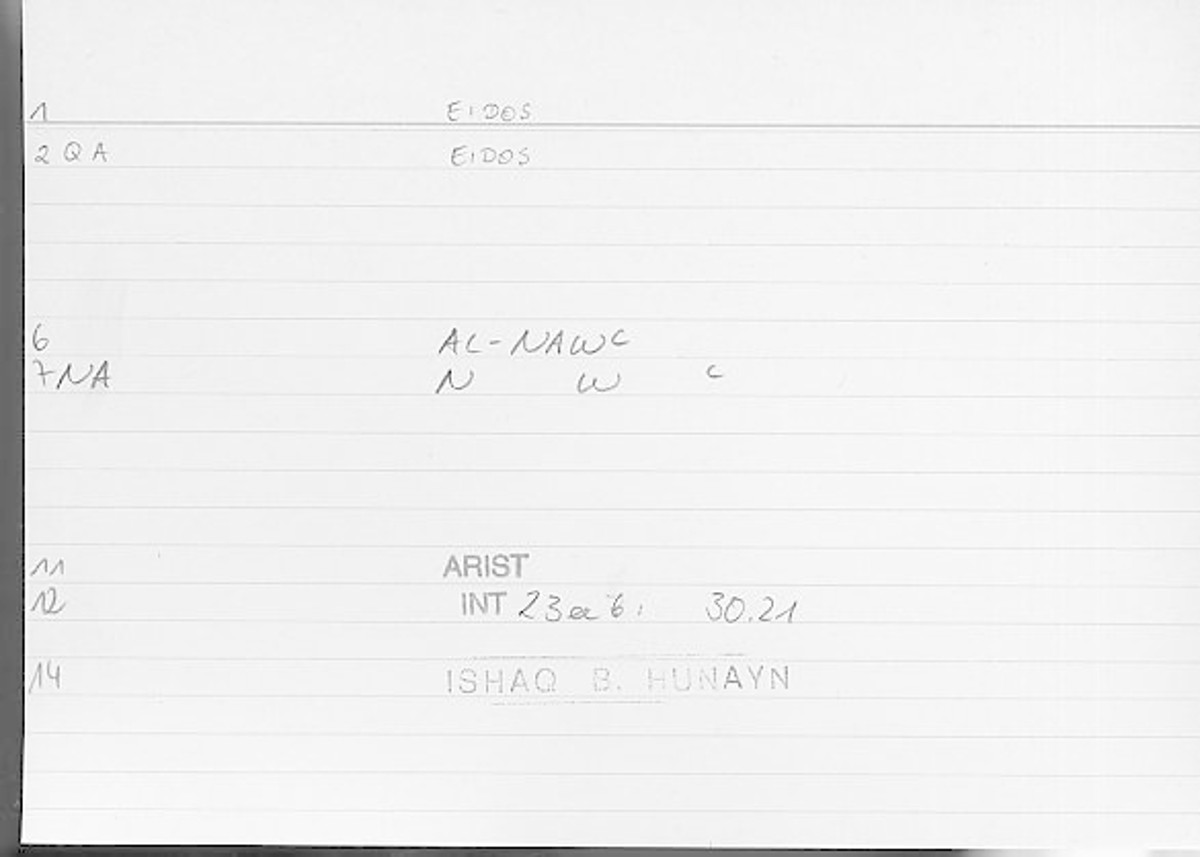 1 EIDOS
2 QA EIDOS
6 AL-NAWc
7 NA N W c
11 ARIST
12 INT 23a 6: 30.21
14 ISHAQ B. HUNAYN